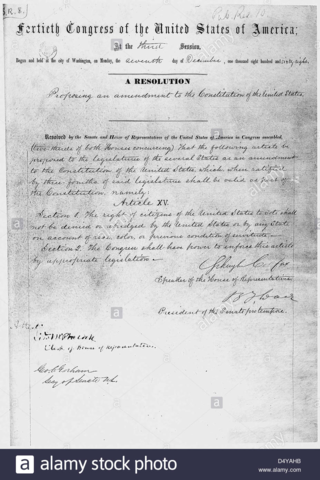 [R. 8.]
Fortieth Congress of the United States of America;
At the third Session,
Begun and held at the city of Washington, on Monday, the seventh day of December, one thousand eight hundred and sixty-eight.
A RESOLUTION
Proposing an amendment to the Constitution of the United States.
Resolved by the Senate and House of Representatives of the United States of America in Congress assembled,
two-thirds of both Houses concurring) That the following article be
proposed to the legislatures of the several States as an amendment
to the Constitution of the United States, which, when ratified
by three fourths of said legislatures shall be valid as part of
the Constitution, namely:
Article XV.
Section 1. The right of citizens of the United States to vote shall
not be denied or abridged by the United States or by any State
on account of race, color, or previous condition of servitude.
Section 2. The Congress shall have power to enforce this article
by appropriate legislation.
Schuyler Colfax
Speaker of the House of Representatives.
B. F. Wade
President of the Senate pro tempore.
Attest:
Clerk of House of Representatives.
Geo. C. Gorham
Secy of Senate U.S.
a alamy stock photo
D4YAHB
www.alamy.com